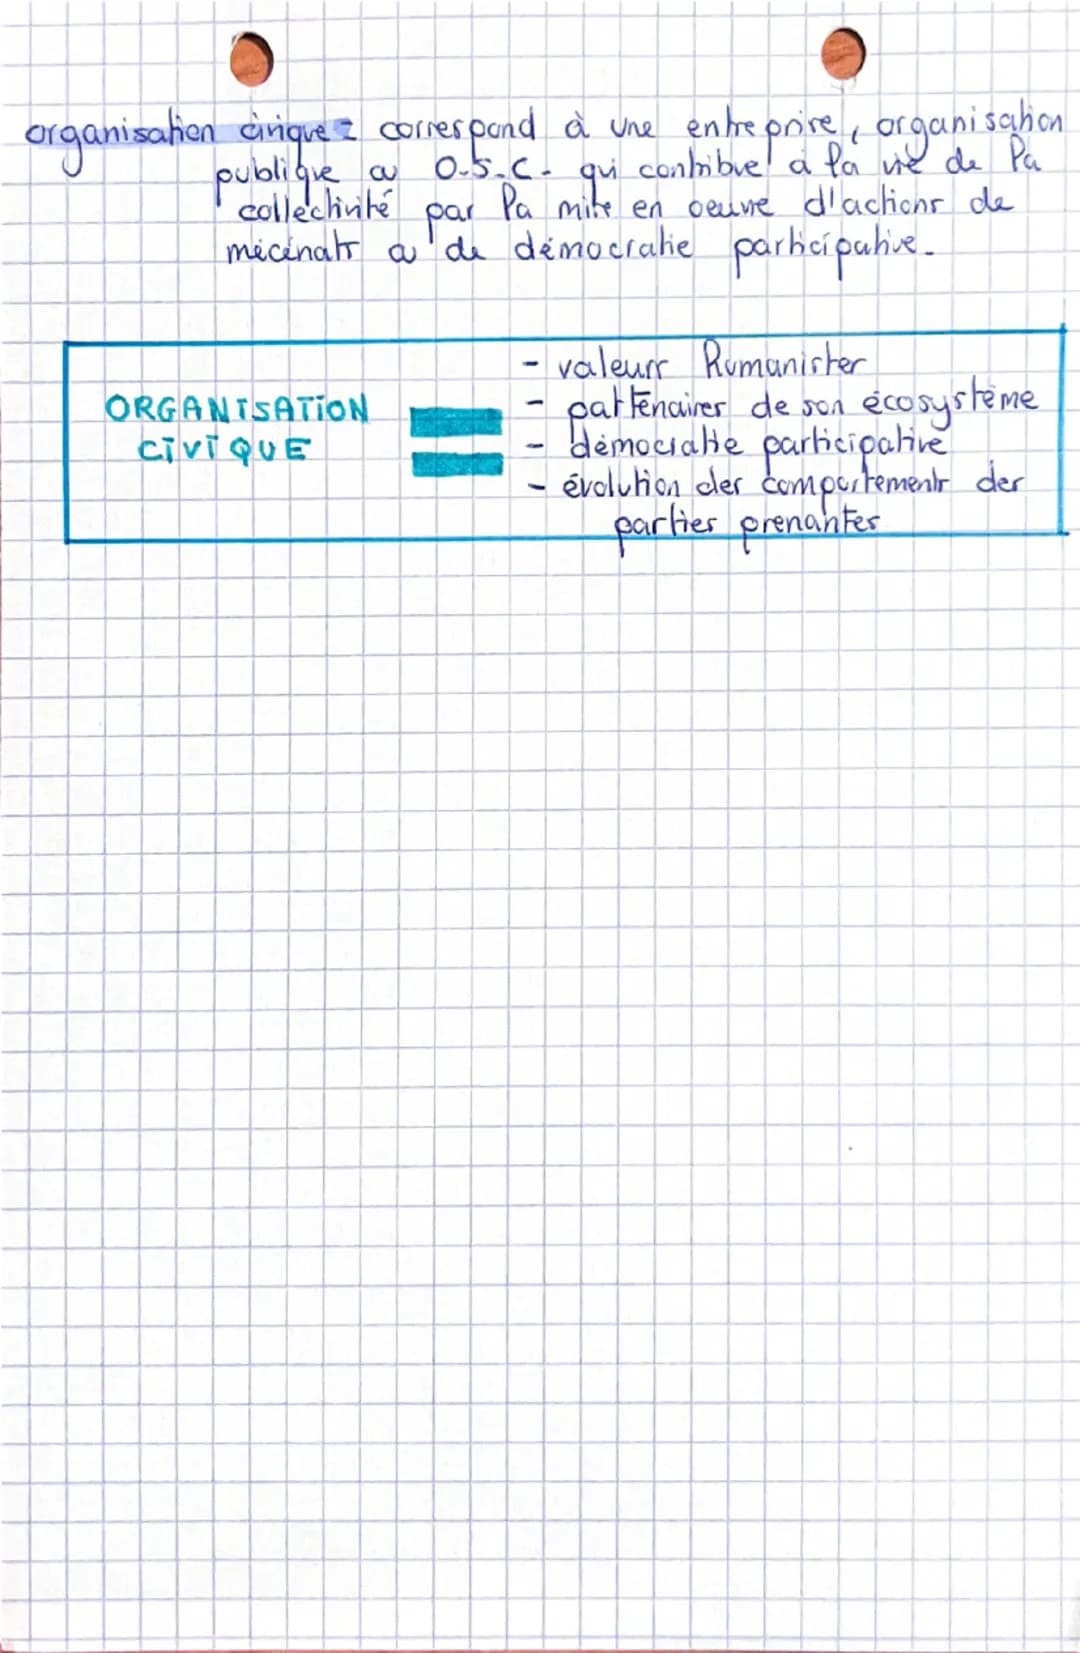 organisation civique = correspond à une entreprise, organisation
publique ou O.S.C. qui contribue à la vie de la
collectivité par la mise en oeuvre d'actions de
mécénats ou de démocratie participative.
- valeurs humanistes
ORGANISATION
CIVIQUE
=
- partenaires de son écosystème
- démocratie participative
- évolution des comportements des
parties prenantes